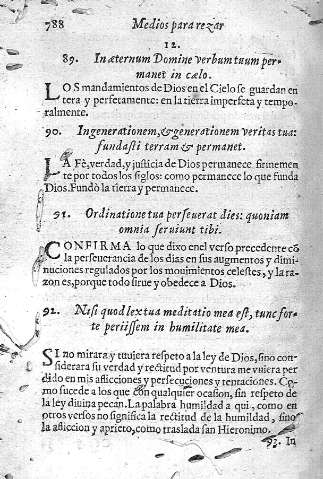 788 Medios para rezar
12.
89. Inæternum Domine verbum tuum per-
manet in cælo.
LOS mandamientos de Dios en el Cielo se guardan en
tera y perfetamente: en la tierra imperfeta y tempo-
ralmente.
90. Ingenerationem, & generationem veritas tua:
fundasti terram & permanet.
LA Fè, verdad, y justicia de Dios permanece firmemen
te por todos los siglos: como permanece lo que funda
Dios. Fundò la tierra y permanece.
91. Ordinatione tua perseuerat dies: quoniam
omnia seruiunt tibi.
CONFIRMA lo que dixo enel verso precedente cō
la perseuerancia de los dias en sus augmentos y dimi-
nuciones regulados por los mouimientos celestes, y la ra-
zon es, porque todo sirue y obedece a Dios.
92. Nisi quod lex tua meditatio mea est, tunc for-
te periissem in humilitate mea.
SI no mirara y tuuiera respeto a la ley de Dios, sino con-
siderara su verdad y rectitud por ventura me vuiera per
dido en mis aflicciones y persecuciones y tentaciones. Co-
mo sucede a los que con qualquier ocasion, sin respeto de
la ley diuina pecan. La palabra humildad a qui, como en
otros versos no significa la rectitud de la humildad, sino
la afliccion y aprieto, como traslada san Hieronimo.
93. In